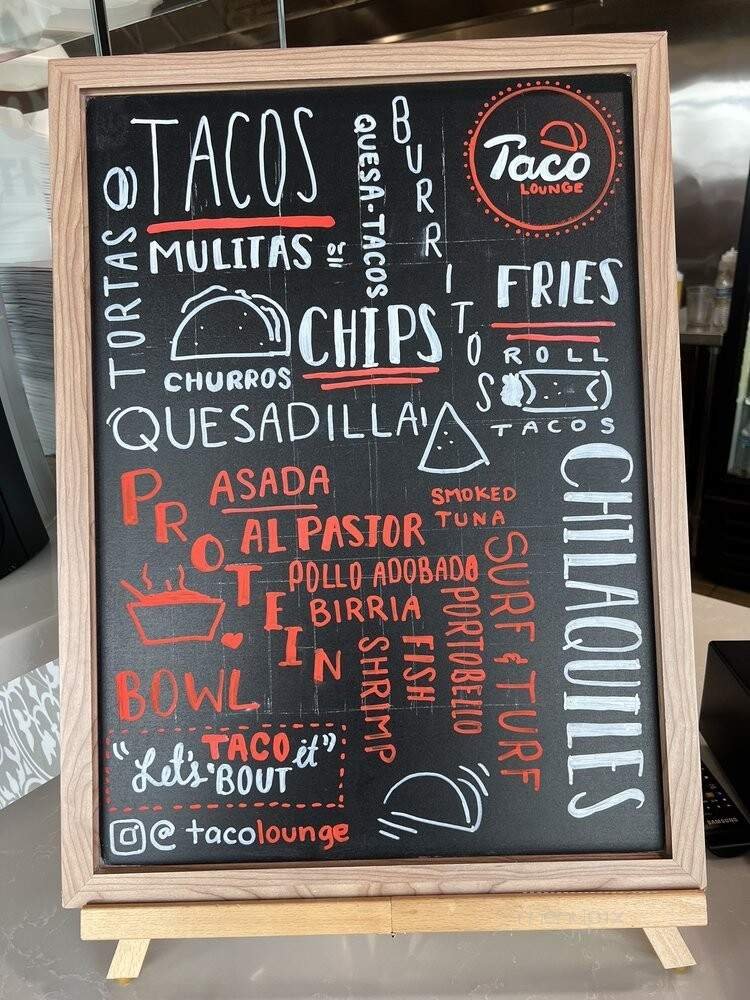 TACOS
QUESA-TACOS
BURRITOS
Taco
LOUNGE
TORTAS
MULITAS or
CHIPS
FRIES
CHURROS
ROLL
TACOS
QUESADILLA
PROTEIN
ASADA
AL PASTOR
POLLO ADOBADO
BIRRIA
SHRIMP
FISH
PORTOBELLO
SMOKED
TUNA
SURF & TURF
CHILAQUILES
BOWL
"Let's TACO
'BOUT it"
@tacolounge
SAMSUNG